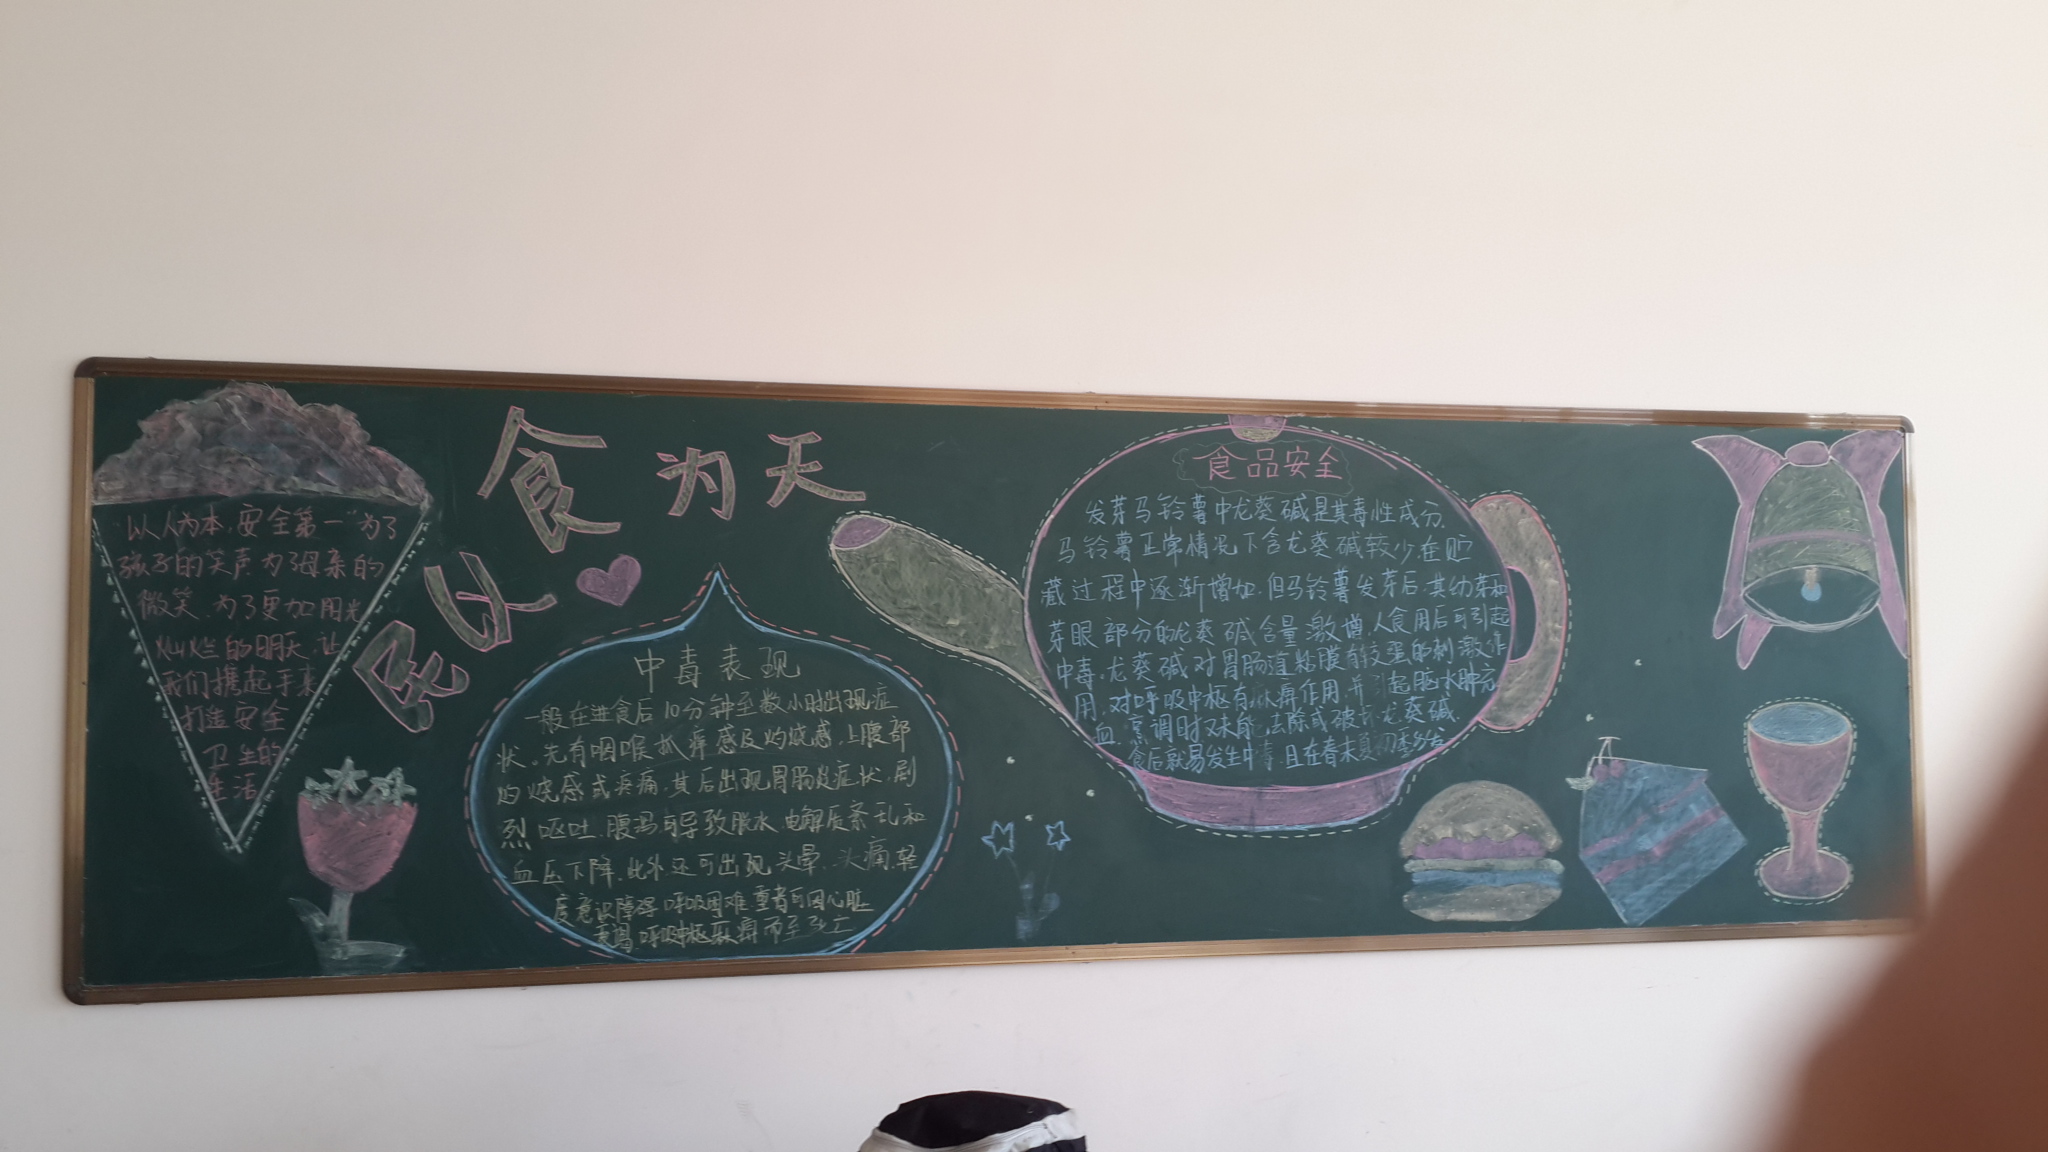 民以食为天
"以人为本,安全第一"为了
孩子的笑声,为了母亲的
微笑,为了更加阳光
灿烂的明天,让
我们携起手来
打造安全
卫生的
生活
中毒表现
一般在进食后10分钟至数小时出现症
状。先有咽喉抓痒感及灼烧感,上腹部
灼烧感或疼痛,其后出现胃肠炎症状,剧
烈呕吐,腹泻可导致脱水,电解质紊乱和
血压下降,此外还可出现头晕,头痛,轻
度意识障碍 呼吸困难 重者可因心脏
衰竭 呼吸中枢麻痹而至死亡
食品安全
发芽马铃薯中龙葵碱是其毒性成分,
马铃薯正常情况下含龙葵碱较少,在贮
藏过程中逐渐增加,但马铃薯发芽后,其幼芽和
芽眼部分的龙葵碱含量激增,人食用后可引起
中毒,龙葵碱对胃肠道粘膜有较强的刺激作
用,对呼吸中枢有麻痹作用,并引起脑水肿充
血,烹调时又未能去除或破坏龙葵碱,
食后就易发生中毒,且在春末夏初季多发